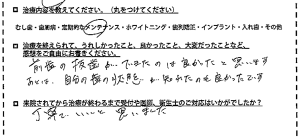 治療内容を教えてください。(丸をつけてください)
むし歯・歯周病・定期的なメンテナンス・ホワイトニング・歯列矯正・インプラント・入れ歯・その他
治療を終えられて、うれしかったこと、良かったこと、大変だったことなど、
感想をご自由にお書きください。
前歯の抜歯ができたのは良かったと思います
あとは、自分の歯の状態が知れたのも良かったです
来院されてから治療が終わるまで受付や医師、衛生士のご対応はいかがでしたか?
丁寧で、いいと思いました